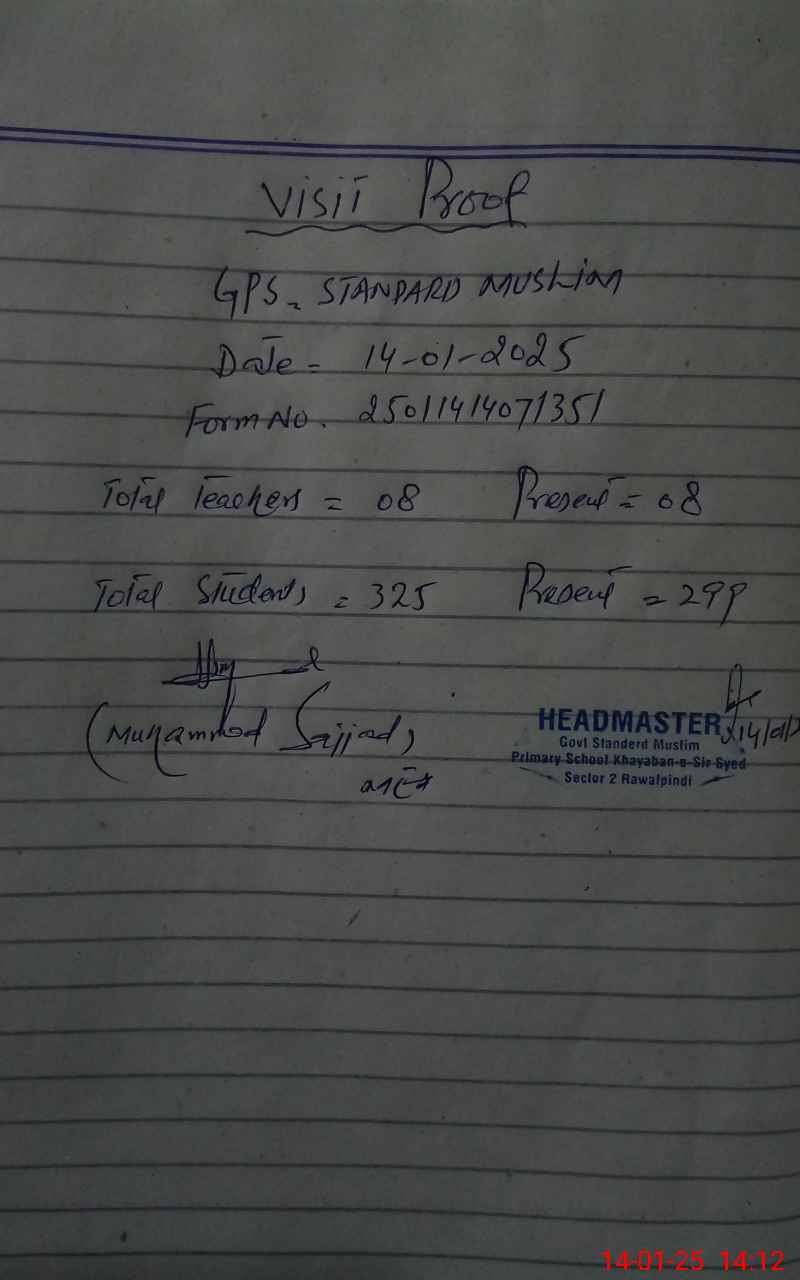 Visit Proof
GPS = STANDARD MUSLIM
Date = 14-01-2025
Form No. 25011414071351
Total Teachers = 08 Present = 08
Total Students = 325 Present = 299
(Muhammad Sajjad)
HEADMASTER
Govt Standerd Muslim
Primary School Khayaban-e-Sir Syed
Sector 2 Rawalpindi
14-01-25 14:12